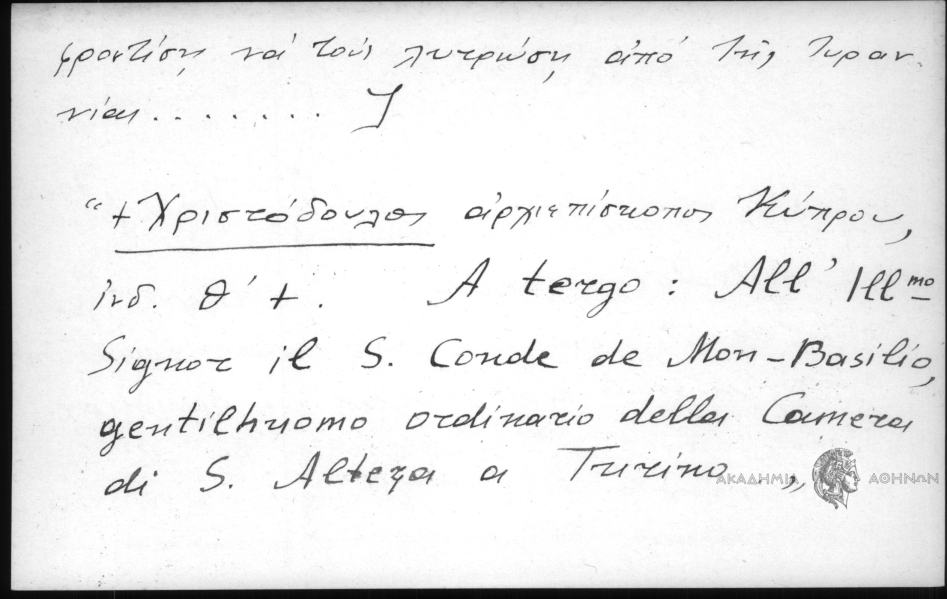 φροντίση νά τούς λυτρώση ἀπό τῆς τυραν-
νίας........]
“+Χριστόδουλος ἀρχιεπίσκοπος Κύπρου,
ἰνδ. θ' +. A tergo: All' Illmo
Signor il S. Conde de Mon-Basilio,
gentilhuomo ordinario della Camera
di S. Alteza a Turino.„
ΑΚΑΔΗΜΙΑ ΑΘΗΝΩΝ